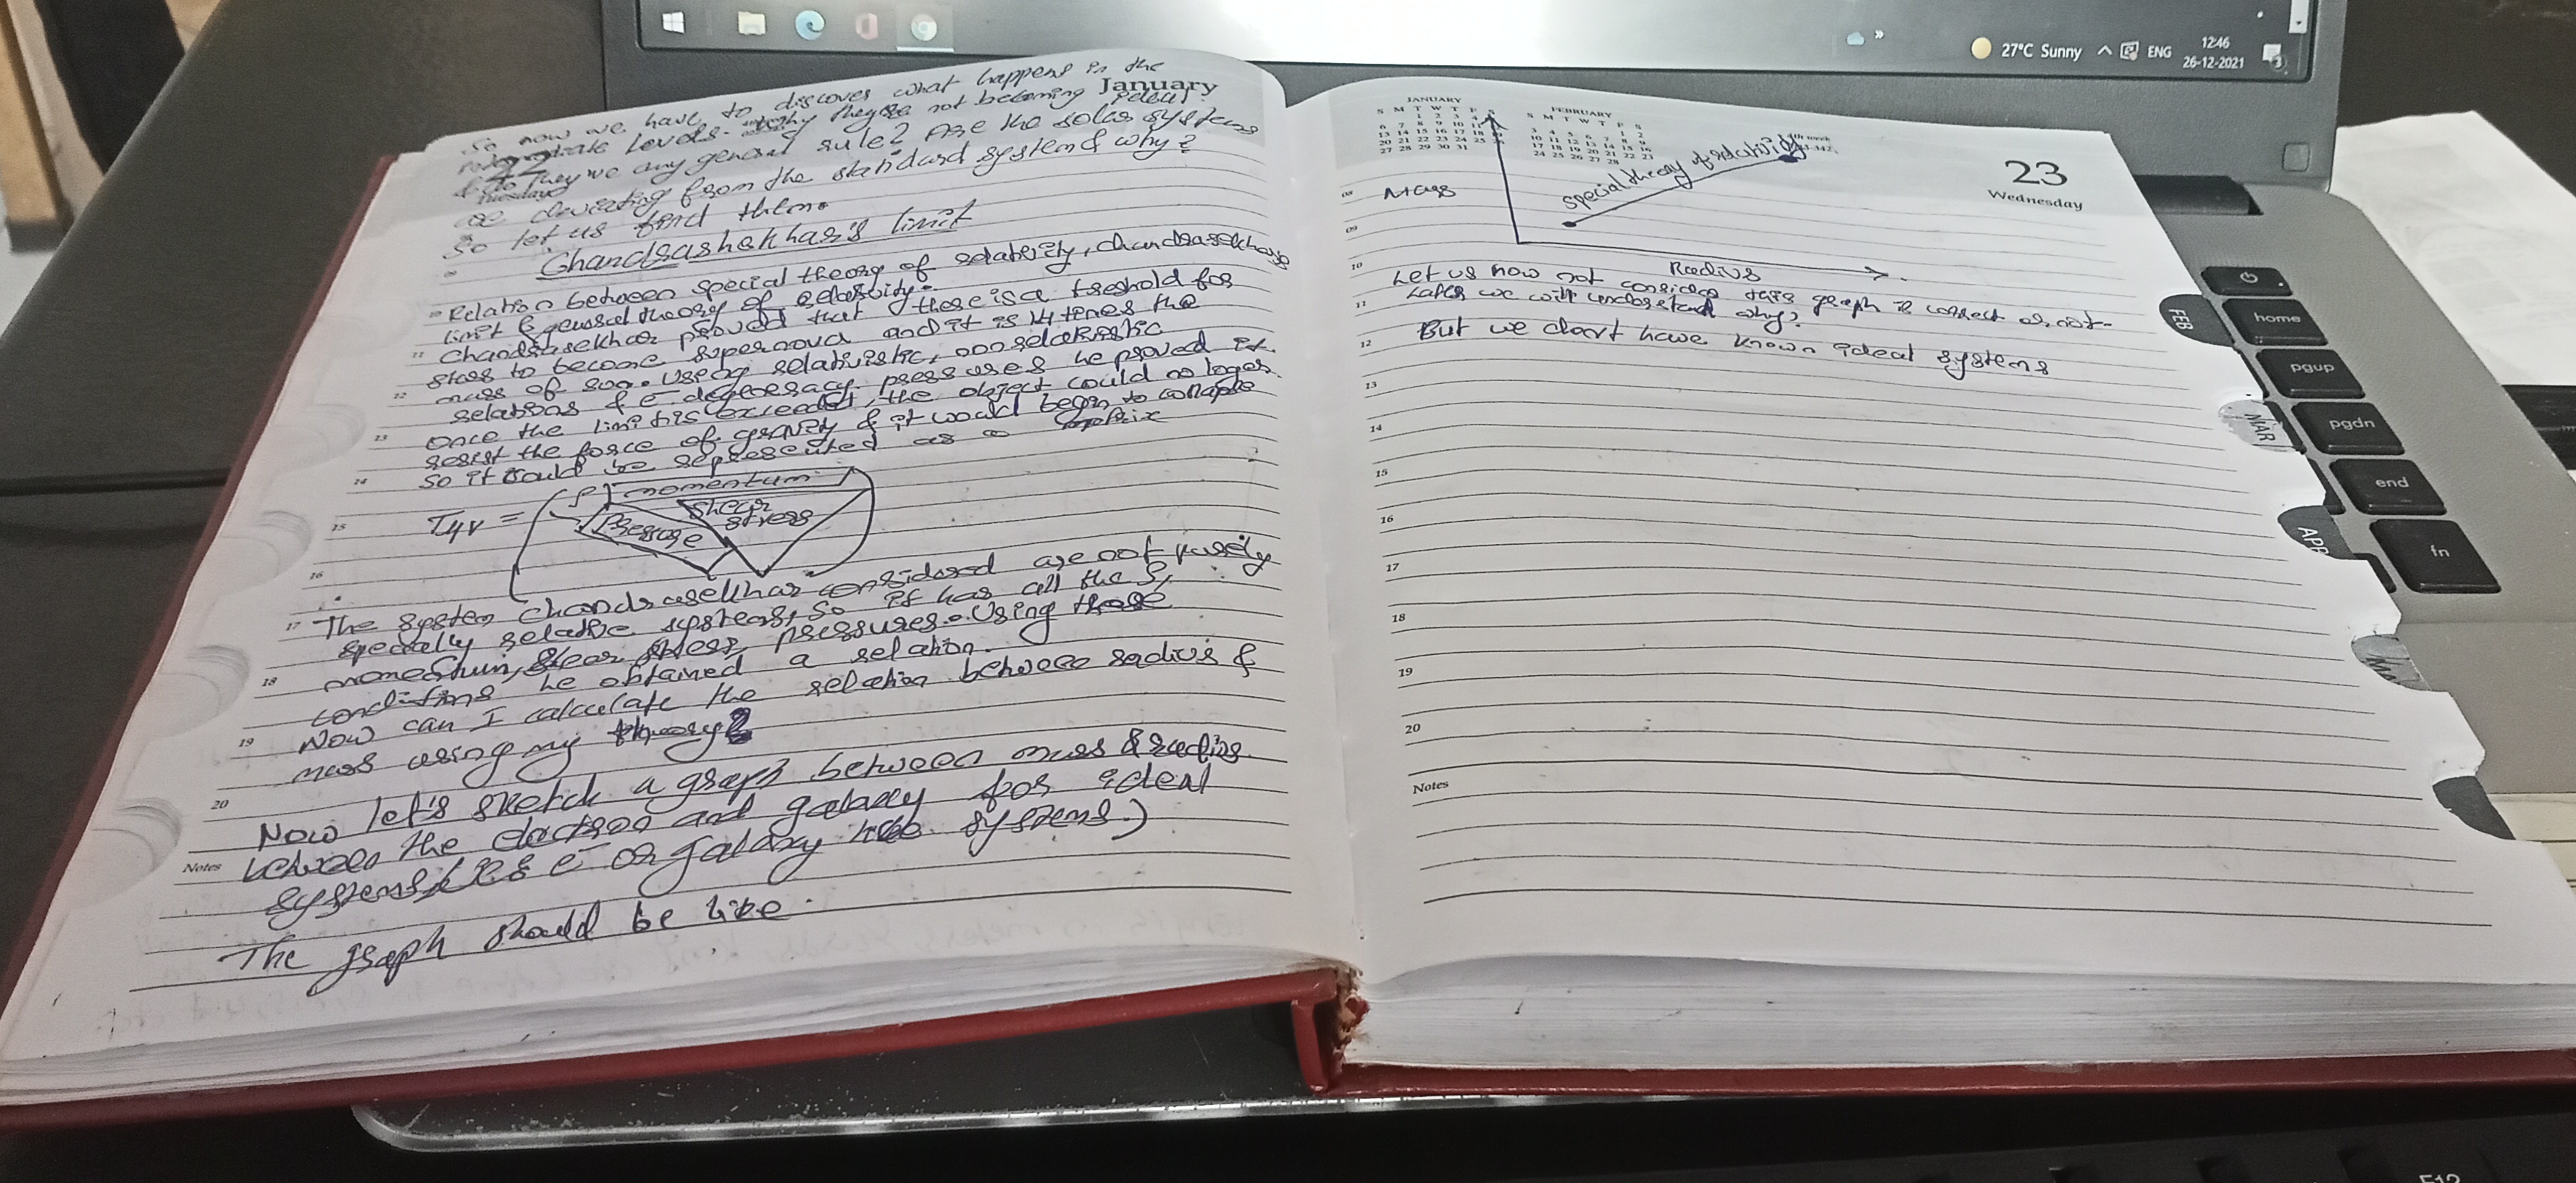 27°C Sunny
ENG
12:46
26-12-2021
3
January
22
Tuesday
So now we have to discover what happens in the
levels. why they're not becoming ideal?
we any general rule? Are the solar systems
deviating from the standard system & why?
So let us find them.
Chandrashekhar's limit
Relation between special theory of relativity, chandrasekhars
limit & general theory of relativity.
Chandrasekhar proved that there is a treshold for
stars to become supernova and it is 1.4 times the
mass of sun. Using relativistic, nonrelativistic
relations & e- degeneracy pressures he proved it.
once the limit is exceeded, the object could no longer
resist the force of gravity & it would begin to collapse
So it could be represented as a
momentum
shear
stress
Pressure
The system chandrasekhar considered are not purely
specially relative systems, so it has all the ρ,
momentum, shear stress, pressures. Using these
conditions he obtained a relation.
Now can I calculate the relation between radius &
mass using my theory?
Now let's sketch a graph between mass & radius
between the electron and galaxy for ideal
systems e- or galaxy like systems.)
The graph should be like.
09
11
12
13
14
15
16
17
18
19
20
Notes
JANUARY
S M T W T F S
1 2 3 4 5
6 7 8 9 10 11
13 14 15 16 17 18
20 21 22 23 24 25
27 28 29 30 31
FEBRUARY
S M T W T F S
1 2
3 4 5 6 7 8 9
10 11 12 13 14 15 16
17 18 19 20 21 22 23
24 25 26 27 28
23
Wednesday
Mass
special theory of relativity
Radius
Let us now not consider this graph is correct or not.
Later we will understand why?
But we don't have known ideal systems
08
09
10
11
12
13
14
15
16
17
18
19
20
Notes
FEB
MAR
APR
home
pgup
pgdn
end
fn
F12